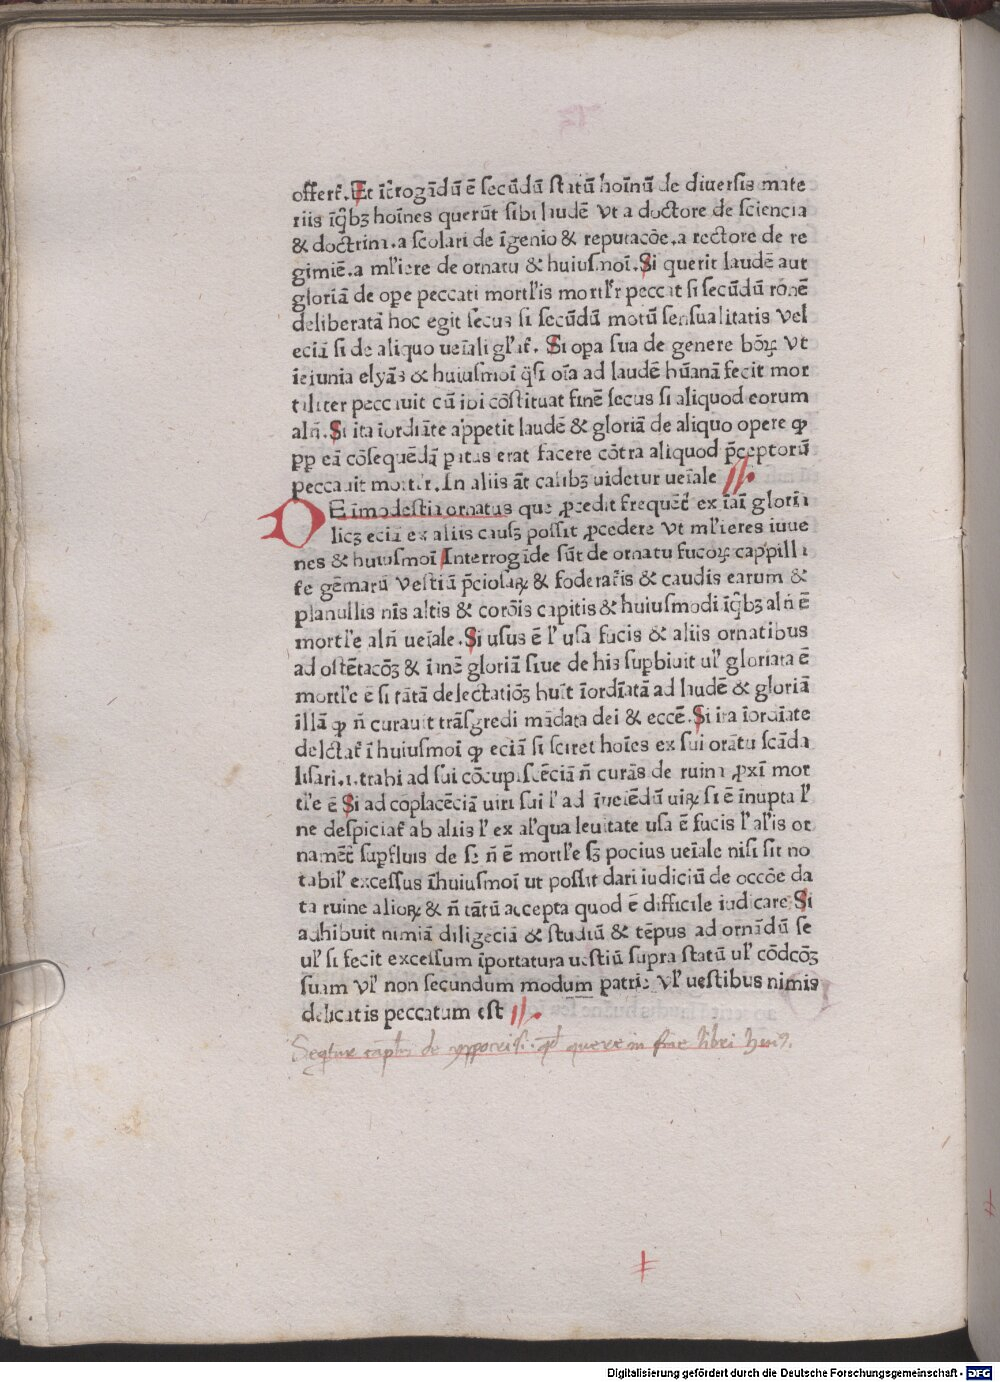 offert̄. Et īt̄rogādū ē secūdū statū hoīnū de diuersis mate
riis īq̄bꝫ hoīnes querūt sibi laudē vt a doctore de sciencia
& doctrina. a scolari de īgenio & reputacōe. a rectore de re
gimiē. a ml̓iere de ornatu & huiusmoī. Si querit laudē aut
gloriā de ope peccati mortl̓is mortl̓r peccat si secūdū rōnē
deliberatā hoc egit secus si secūdū motū sensualitatis vel
eciā si de aliquo ueīali gl̓at̄. Si opa sua de genere bōꝝ vt
ieiunia elyās & huiusmoī q̄si oīa ad laudē hūanā fecit mor
taliter peccauit cū ibi cōstituat finē secus si aliquod eorum
aln̄. Si ita īordīāte appetit laudē & gloriā de aliquo opere ꝙ
ꝓp eā cōsequēdā patus erat facere cōtra aliquod p̄ceptorū
peccauit mortlr̄. In aliis āt casibꝫ uidetur ueīale
DE īmodestia ornatus que ꝓcedit frequēt̄ ex īaī gloria
licꝫ eciā ex aliis causꝫ possit ꝓcedere vt ml̓ieres iuue
nes & huiusmoī Interrogāde sūt de ornatu fucoꝝ cappilla
re gēmarū vestiū p̄ciosaꝝ & foderat̄is & caudis earum &
planullis nīs altis & corōis capitis & huiusmodi īq̄bꝫ aln̄ ē
mortl̓e aln̄ ueīale. Si usus ē l̓ usa fucis & aliis ornatibus
ad ostētacōꝫ & īanē gloriā siue de his supbiuit ul̓ gloriata ē
mortl̓e ē si tātā delectatiōꝫ huīt īordīatā ad laudē & gloriā
īllā ꝙ n̄ curauit trāsgredi mādata dei & eccē. Si ita īordīate
delctat̄ ī huiusmoī ꝙ eciā si sciret hoīes ex sui orātu scāda
lisari .i. trahi ad sui cōcupiscēciā n̄ curās de ruina ꝓxī mor
tl̓e ē Si ad cōplacēciā uiri sui l̓ ad īueīēdū uiꝝ si ē īnupta l̓
ne despiciat̄ ab aliis l̓ ex al̓qua leuitate usa ē fucis l̓ al̓is or
namēt̄ supfluis de se n̄ ē mortl̓e sꝫ pocius ueīale nisi sit no
tabil̓ excessus īhuiusmoī ut possit dari iudiciū de occōe da
ta ruine alioꝝ & n̄ tātū accepta quod ē difficile iudicare Si
adhibuit nimiā diligēciā & studiū & tēpus ad ornādū se
ul̓ si fecit excessum īportatura uestiū supra statū ul̓ cōdcōꝫ
suam vl̓ non secundum modum patrie vl̓ uestibus nimis
delicatis peccatum est
Seq̄tur capl̄m de ypocrisi. qd̄ quere in fine libri huiꝰ.
Digitalisierung gefördert durch die Deutsche Forschungsgemeinschaft - DFG